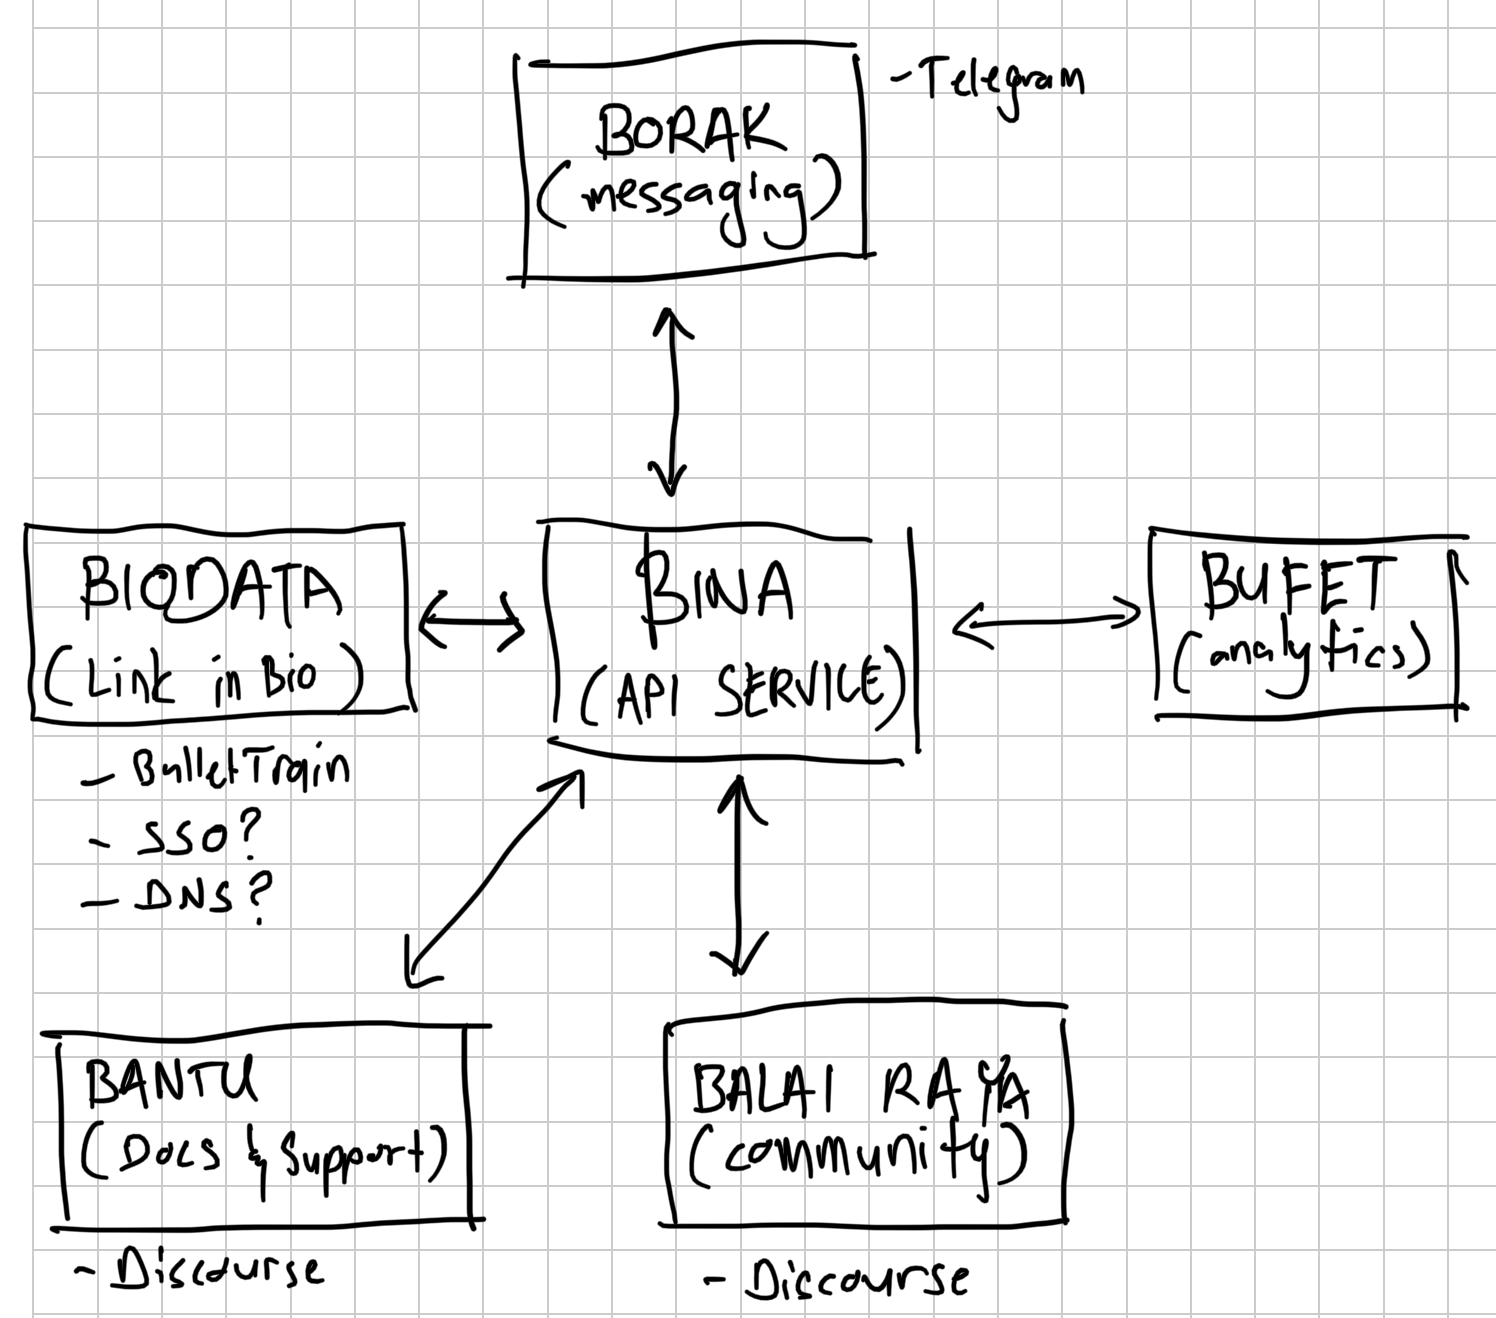 BORAK
(messaging)
- Telegram
BIODATA
(Link in Bio)
- BulletTrain
- SSO?
- DNS?
BINA
(API SERVICE)
BUFET
(analytics)
BANTU
(Docs & Support)
- Discourse
BALAI RAYA
(community)
- Discourse